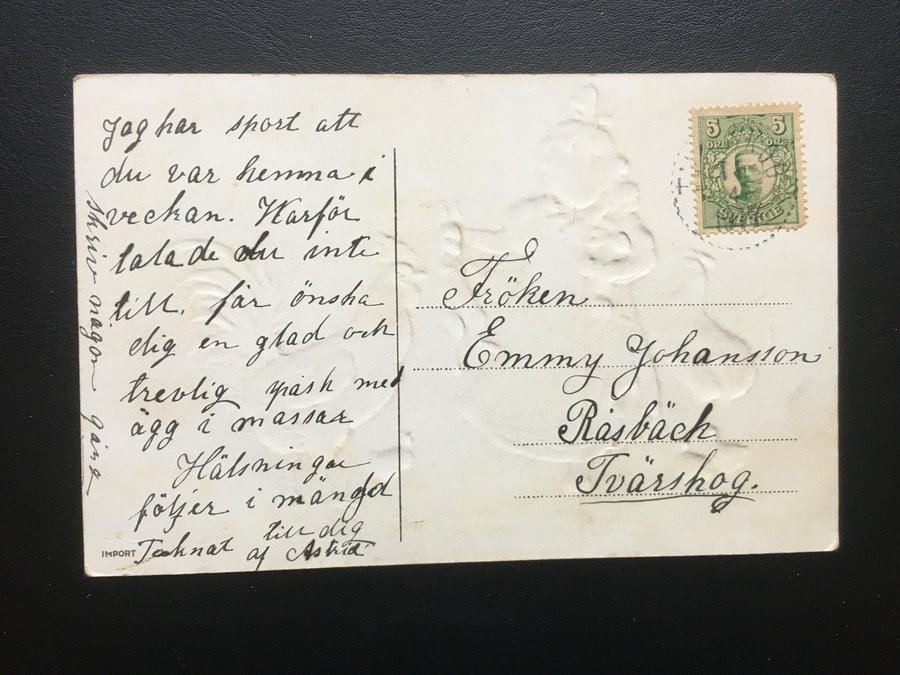 Jag har sport att
du var hemma i
veckan. Warför
talade du inte
till, får önska
dig en glad och
trevlig påsk med
ägg i massar
Hälsningar
följer i mängd
till dig
Teknat af Astrid
Skriv någon gång
IMPORT
5 5
ÖRE ÖRE
SVERIGE
Fröken
Emmy Johansson
Råsbäck
Tvärskog.